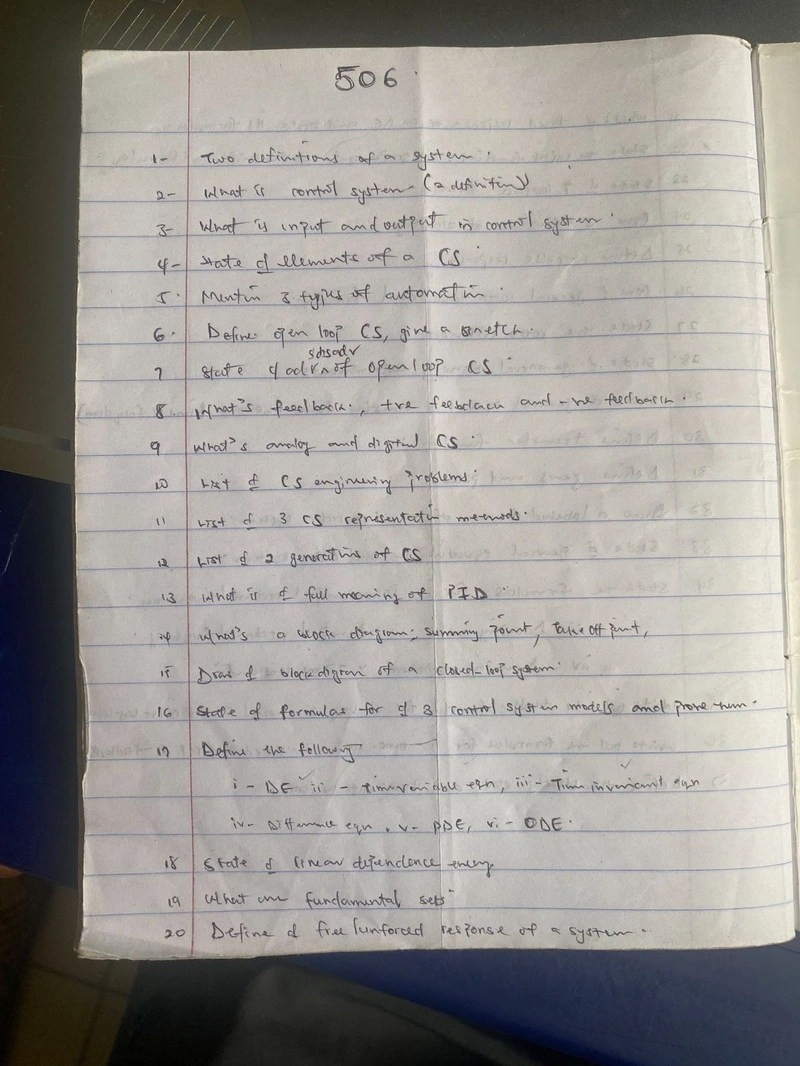 506
1- Two definitions of a system.
2- What is control system - (2 definition)
3- What is input and output in control system.
4- State d elements of a CS.
5. Mention 3 types of automatin.
6. Define open loop CS, give a sketch.
7 State 4 adv of open loop CS.
8 What's feedback, +ve feedback and -ve feedback.
9 What's analog and digital CS.
10 List d CS engineering problems.
11 List d 3 CS representatin methods.
12 List d 2 generatins of CS
13 What is d full meaning of PID.
14 What's a block diagram, summing point, Take off point,
15 Draw d block digram of a closed-loop system.
16 State d formulas for d 3 control system models and prove them.
17 Define the following
i - DE ii - Time variable eqn, iii - Time invariant eqn
iv - Difference eqn, v - PDE, vi - ODE.
18 State d linear dependence
19 What are fundamental sets
20 Define d free/unforced response of a system.